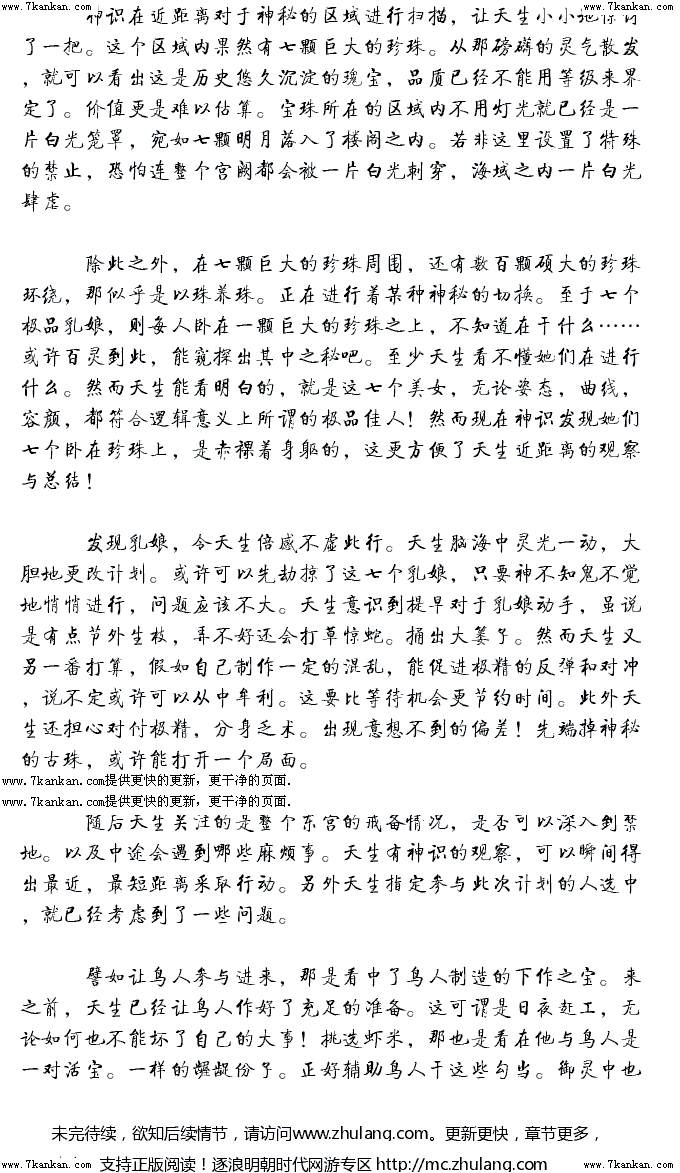 www.7kankan.com www.7kankan.com
神识在近距离对于神秘的区域进行扫描，让天生小小地惊讶
了一把。这个区域内果然有七颗巨大的珍珠。从那磅礴的灵气散发
，就可以看出这是历史悠久沉淀的瑰宝，品质已经不能用等级来界
定了。价值更是难以估算。宝珠所在的区域内不用灯光就已经是一
片白光笼罩，宛如七颗明月落入了楼阁之内。若非这里设置了特殊
的禁止，恐怕连整个宫阙都会被一片白光刺穿，海域之内一片白光
肆虐。
除此之外，在七颗巨大的珍珠周围，还有数百颗硕大的珍珠
环绕，那似乎是以珠养珠。正在进行着某种神秘的切换。至于七个
极品乳娘，则每人卧在一颗巨大的珍珠之上，不知道在干什么……
或许百灵到此，能窥探出其中之秘吧。至少天生看不懂她们在进行
什么。然而天生能看明白的，就是这七个美女，无论姿态，曲线，
容颜，都符合逻辑意义上所谓的极品佳人！然而现在神识发现她们
七个卧在珍珠上，是赤裸着身躯的，这更方便了天生近距离的观察
与总结！
发现乳娘，令天生倍感不虚此行。天生脑海中灵光一动，大
胆地更改计划。或许可以先劫掠了这七个乳娘，只要神不知鬼不觉
地悄悄进行，问题应该不大。天生意识到提早对于乳娘动手，虽说
是有点节外生枝，弄不好还会打草惊蛇。捅出大篓子。然而天生又
另一番打算，假如自己制作一定的混乱，能促进极精的反弹和对冲
，说不定或许可以从中牟利。这要比等待机会更节约时间。此外天
生还担心对付极精，分身乏术。出现意想不到的偏差！先端掉神秘
的古珠，或许能打开一个局面。
www.7kankan.com提供更快的更新，更干净的页面.
www.7kankan.com提供更快的更新，更干净的页面.
随后天生关注的是整个东宫的戒备情况，是否可以深入到禁
地。以及中途会遇到哪些麻烦事。天生有神识的观察，可以瞬间得
出最近，最短距离采取行动。另外天生指定参与此次计划的人选中
，就已经考虑到了一些问题。
譬如让鸟人参与进来，那是看中了鸟人制造的下作之宝。来
之前，天生已经让鸟人作好了充足的准备。这可谓是日夜赶工，无
论如何也不能坏了自己的大事！挑选虾米，那也是看在他与鸟人是
一对活宝。一样的龌龊份子。正好辅助鸟人干这些勾当。御灵中也
未完待续，欲知后续情节，请访问www.zhulang.com。更新更快，章节更多，
支持正版阅读！逐浪明朝时代网游专区 http://mc.zhulang.com
www.7kankan.com www.7kankan.com